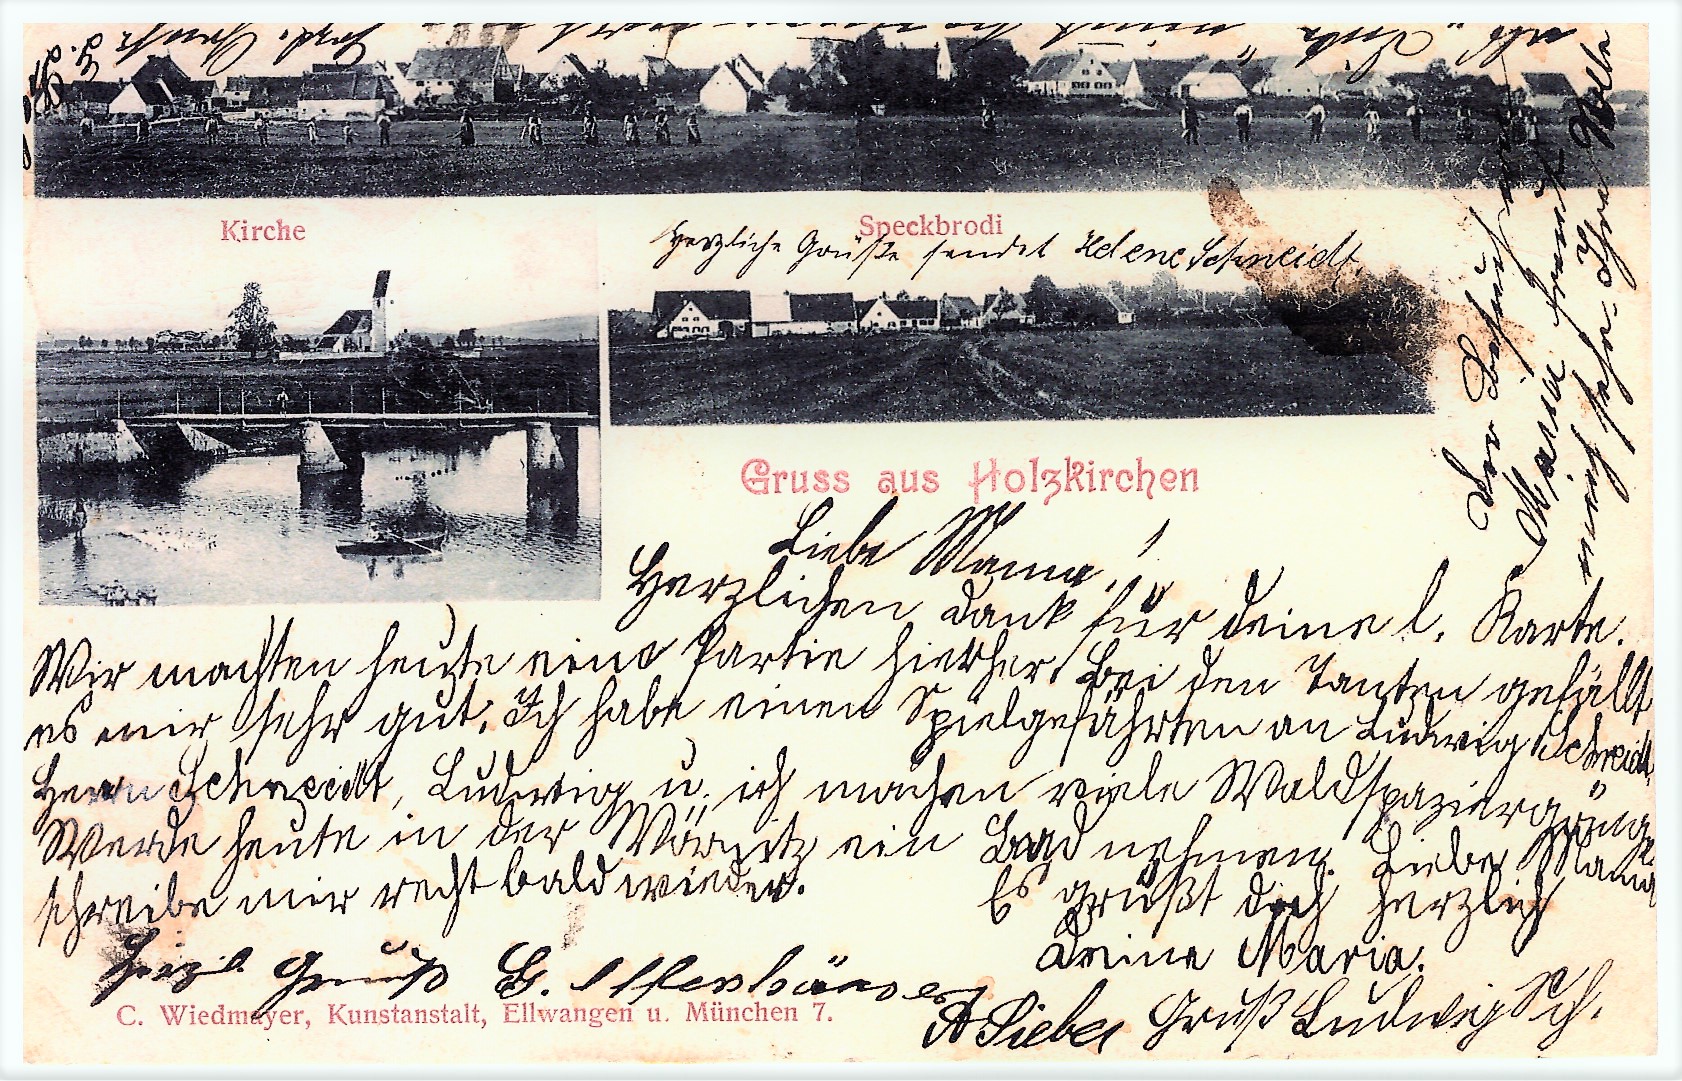 Kirche
Speckbrodi
Herzliche Grüße sendet Helene Schneidt.
Gruss aus Holzkirchen
Liebe Mama!
Herzlichen Dank für deine l. Karte.
Wir machten heute eine Partie hierher. Bei den Tanten gefällt
es mir sehr gut. Ich habe einen Spielgefährten an Ludwig Schneidt,
Herrn Schneidt, Ludwig u. ich machen viele Waldspaziergänge.
Werde heute in der Wörnitz ein Bad nehmen. Liebe Mama
schreibe mir recht bald wieder.
Es grüßt dich herzlich
Deine Maria.
Herzl. Gruß
C. Wiedmayer, Kunstanstalt, Ellwangen u. München 7.
Gruß Ludwig Sch.
Der Besuch von
Maria freut
mich sehr. Ihre